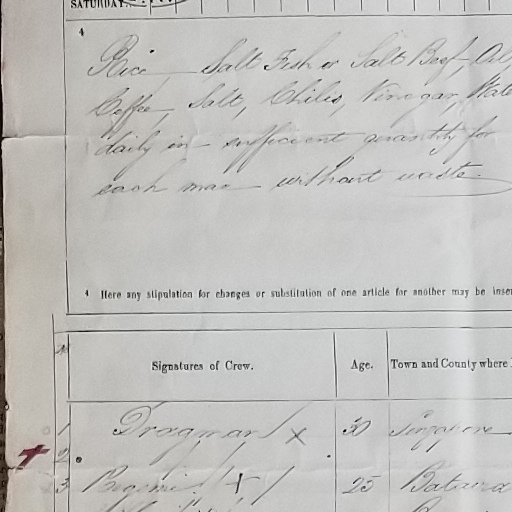 SATURDAY
4
Rice Salt Fish or Salt Beef, Oil
Coffee, Salt, Chilis, Vinegar, Wate
daily in sufficient quantity for
each man without waste.
4 Here any stipulation for changes or substitution of one article for another may be inser
Signatures of Crew. Age. Town and County where
1 Dragman X 30 Singapore
2
3 X 25 Batavia